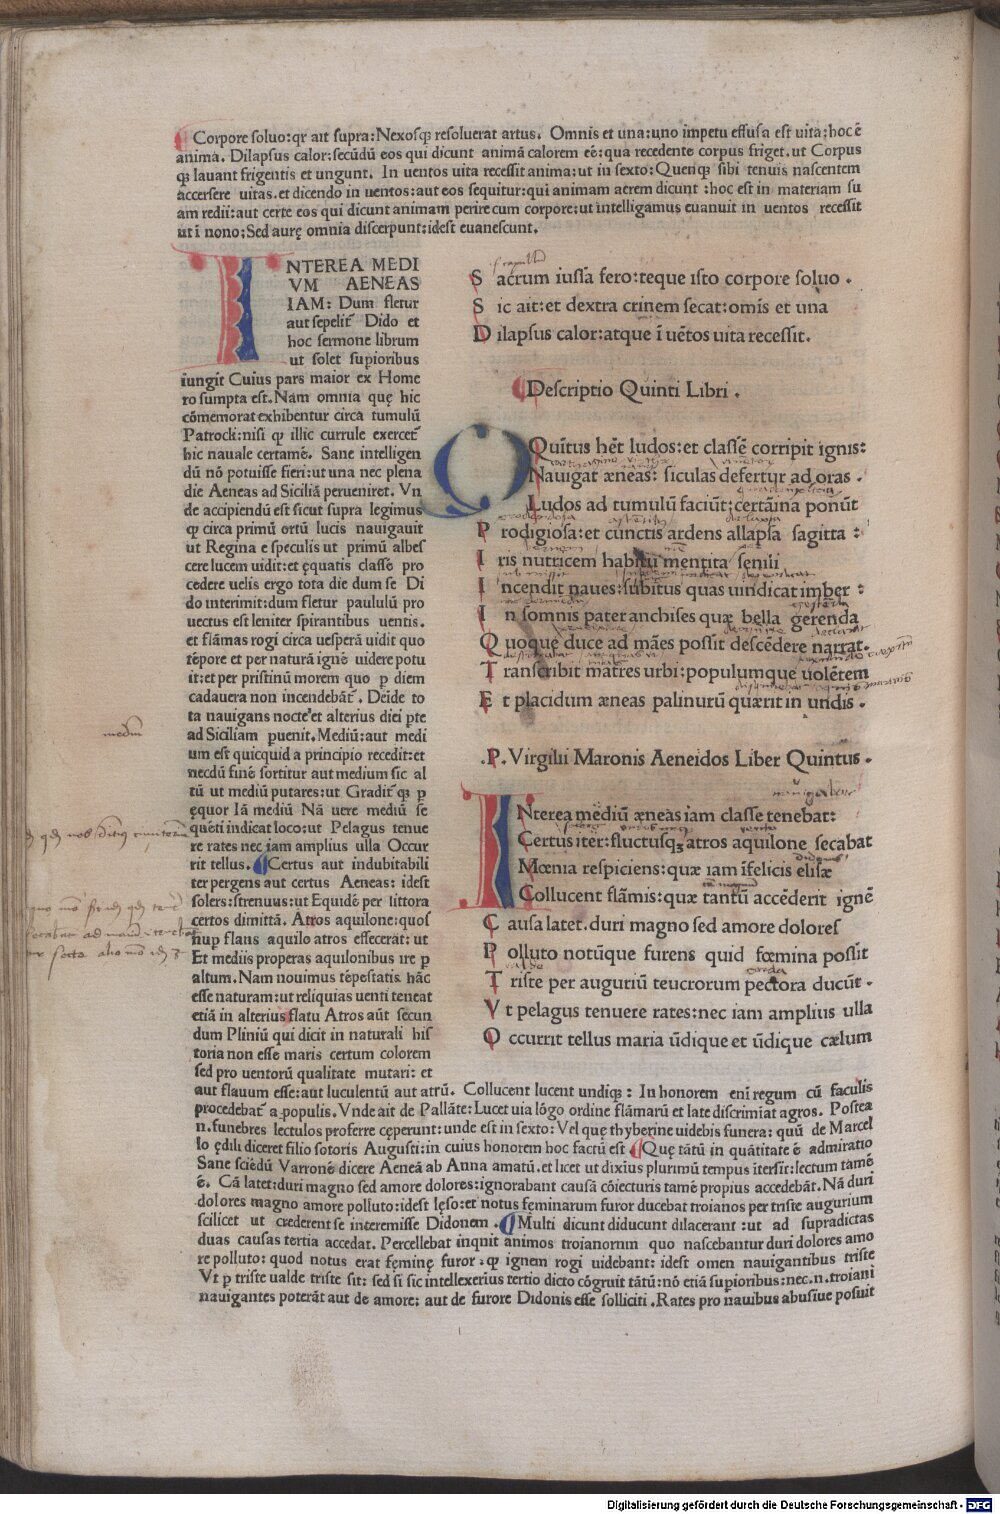 Corpore soluo:qr ait supra:Nexosq; resoluerat artus. Omnis et una:uno impetu effusa est uita:hoc ē
anima. Dilapsus calor:secūdū eos qui dicunt animā calorem eē:qua recedente corpus friget.ut Corpus
q; lauant frigentis et ungunt. In uentos uita recessit anima:ut in sexto:Quenq; sibi tenuis nascentem
accersere uitas.et dicendo in uentos:aut eos sequitur:qui animam aerem dicunt :hoc est in materiam su
am redii:aut certe eos qui dicunt animam perire cum corpore:ut intelligamus euanuit in uentos recessit
ut ī nono:Sed aurę omnia discerpunt:idest euanescunt.
S acrum iussa fero:teque isto corpore soluo .
S ic ait:et dextra crinem secat:omīs et una
D ilapsus calor:atque ī uētos uita recessit.
Descriptio Quinti Libri .
Q Quītus hēt ludos:et classē corripit ignis:
Nauigat æneas: siculas defertur ad oras .
Ludos ad tumulū faciūt:certāina ponūt
P rodigiosa:et cunctis ardens allapsa sagitta :
I ris nutricem habitū mentita senili
I ncendit naues:subitus quas uindicat imber :
I n somnis pater anchises quæ bella gerenda
Q uoque duce ad māes possit descēdere narrat.
T ranscribit matres urbi:populumque uolētem
E t placidum æneas palinurū quærit in undis .
.P. Virgilii Maronis Aeneidos Liber Quintus .
INterea mediū æneas iam classe tenebat:
Certus iter:fluctusq; atros aquilone secabat
Mœnia respiciens:quæ iam īfelicis elisæ
Collucent flāmis:quæ tantū accēderit ignē
C ausa latet.duri magno sed amore dolores
P olluto notūque furens quid fœmina possit
T riste per auguriū teucrorum pectora ducūt .
V t pelagus tenuere rates:nec iam amplius ulla
O ccurrit tellus maria ūdique et ūdique cælum
INTEREA MEDI
VM AENEAS
IAM: Dum fletur
aut sepelit Dido et
hoc sermone librum
ut solet supioribus
iungit Cuius pars maior ex Home
ro sumpta est.Nam omnia quę hic
cōmemorat exhibentur circa tumulū
Patrocli:nisi q illic currule exercet
hic nauale certamē. Sane intelligen
dū nō potuisse fieri:ut una nec plena
die Aeneas ad Siciliā perueniret. Vn
de accipiendū est sicut supra legimus
q circa primū ortū lucis nauigauit
ut Regina e speculis ut primū albes
cere lucem uidit:et ęquatis classē pro
cedere uelis ergo tota die dum se Di
do interimit:dum fletur paululū pro
uectus est leniter spirantibus uentis.
et flāmas rogi circa uesperā uidit quo
tēpore et per naturā ignē uidere potu
it:et per pristinū morem quo p diem
cadauera non incendebāt. Deīde to
ta nauigans nocte et alterius diei pte
ad Siciliam puenit. Mediū:aut medi
um est quicquid a principio recedit:et
necdū finē sortitur aut medium sic al
tū ut mediū putares:ut Gradit q; p
ęquor Iā mediū Nā uere mediū se
quēti indicat loco:ut Pelagus tenue
re rates nec iam amplius ulla Occur
rit tellus. Certus aut indubitabili
ter pergens aut certus Aeneas: idest
solers:strenuus:ut Equidē per littora
certos dimittā. Atros aquilone:quos
nup flans aquilo atros effecerat: ut
Et mediis properas aquilonibus ire p
altum.Nam nouimus tēpestatis hāc
esse naturam:ut reliquias uenti teneat
etiā in alterius flatu Atros aūt secun
dum Pliniū qui dicit in naturali his
toria non esse maris certum colorem
sed pro uentorū qualitate mutari: et
aut flauum esse:aut luculentū aut atrū. Collucent lucent undiq; : In honorem enī regum cū faculis
procedebat a populis. Vnde ait de Pallāte:Lucet uia lōgo ordine flāmarū et late discrimīat agros. Postea
.n.funebres lectulos proferre cęperunt:unde est in sexto:Vel quę thyberine uidebis funera: quū de Marcel
lo ędili diceret filio sororis Augusti:in cuius honorem hoc factū est Quę tātū in quātitate ē admiratio
Sane sciēdū Varronē dicere Aeneā ab Anna amatū.et licet ut dixius plurimū tempus ītersit:lectum tamē
ē. Cā latet:duri magno sed amore dolores:ignorabant causā cōiecturis tamē propius accedebāt. Nā duri
dolores magno amore polluto:idest lęso:et notus fęminarum furor ducebat troianos per triste augurium
scilicet ut crederent se interemisse Didonem . Multi dicunt diducunt dilacerant :ut ad supradictas
duas causas tertia accedat. Percellebat inqnit animos troianornm quo nascebantur duri dolores amo
re polluto: quod notus erat fęminę furor .q ignem rogi uidebant: idest omen nauigantibus triste
Vt p triste ualde triste sit: sed si sic intellexerius tertio dicto cōgruit tātū:nō etiā supioribus:nec.n.troiani
nauigantes poterāt aut de amore: aut de furore Didonis esse solliciti . Rates pro nauibus abusiue posuit
Digitalisierung gefördert durch die Deutsche Forschungsgemeinschaft - DFG